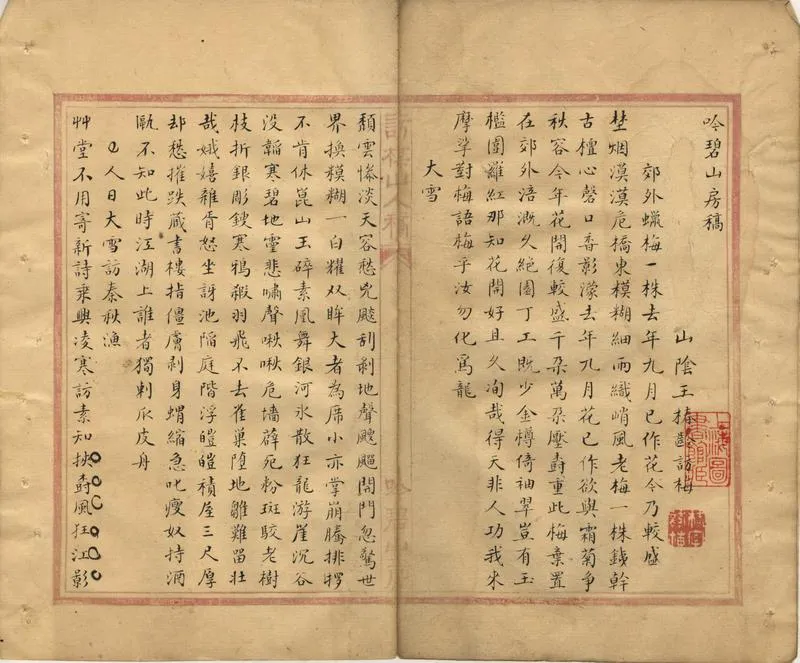 吟碧山房稿
山陰王 訪梅
郊外蠟梅一株去年九月已作花今乃較盛
埜烟漠漠危橋東模糊細雨織峭風老梅一株鐵幹
古檀心磬口香影濛去年九月花已作欲與霜菊爭
秋容今年花開復較盛千朵萬朵壓壽重此梅棄置
在郊外浯溉久絕園丁工既少金樽倚袖翠豈有玉
檻圍籬紅那知花開好且久洵哉得天非人功我來
摩挲對梅語梅乎汝勿化爲龍
大雪
頹雲慘淡天容愁兇飈刮剎地聲颼颼閉門忽驚世
界換模糊一白耀双眸大者為席小亦掌崩騰排㹌
不肯休崑山玉碎素鳳舞銀河氷散狂龍游崖沉谷
沒韜寒碧地靈悲嘯聲啾啾危墻薜死粉斑駁老樹
枝折銀彫鎪寒鴉殺羽飛不去雀巢墮地雛難留壯
哉娥嬉雜胥怒坐訝池陷庭階浮皚皚積屋三尺厚
却愁摧跌藏書樓指僵膚剥身蝟縮急叱瘦奴持酒
甌不知此時江湖上誰者獨剌瓜皮舟
人日大雪訪秦秋漁
艸堂不用寄新詩乘興凌寒訪素知挾壽風狂江影